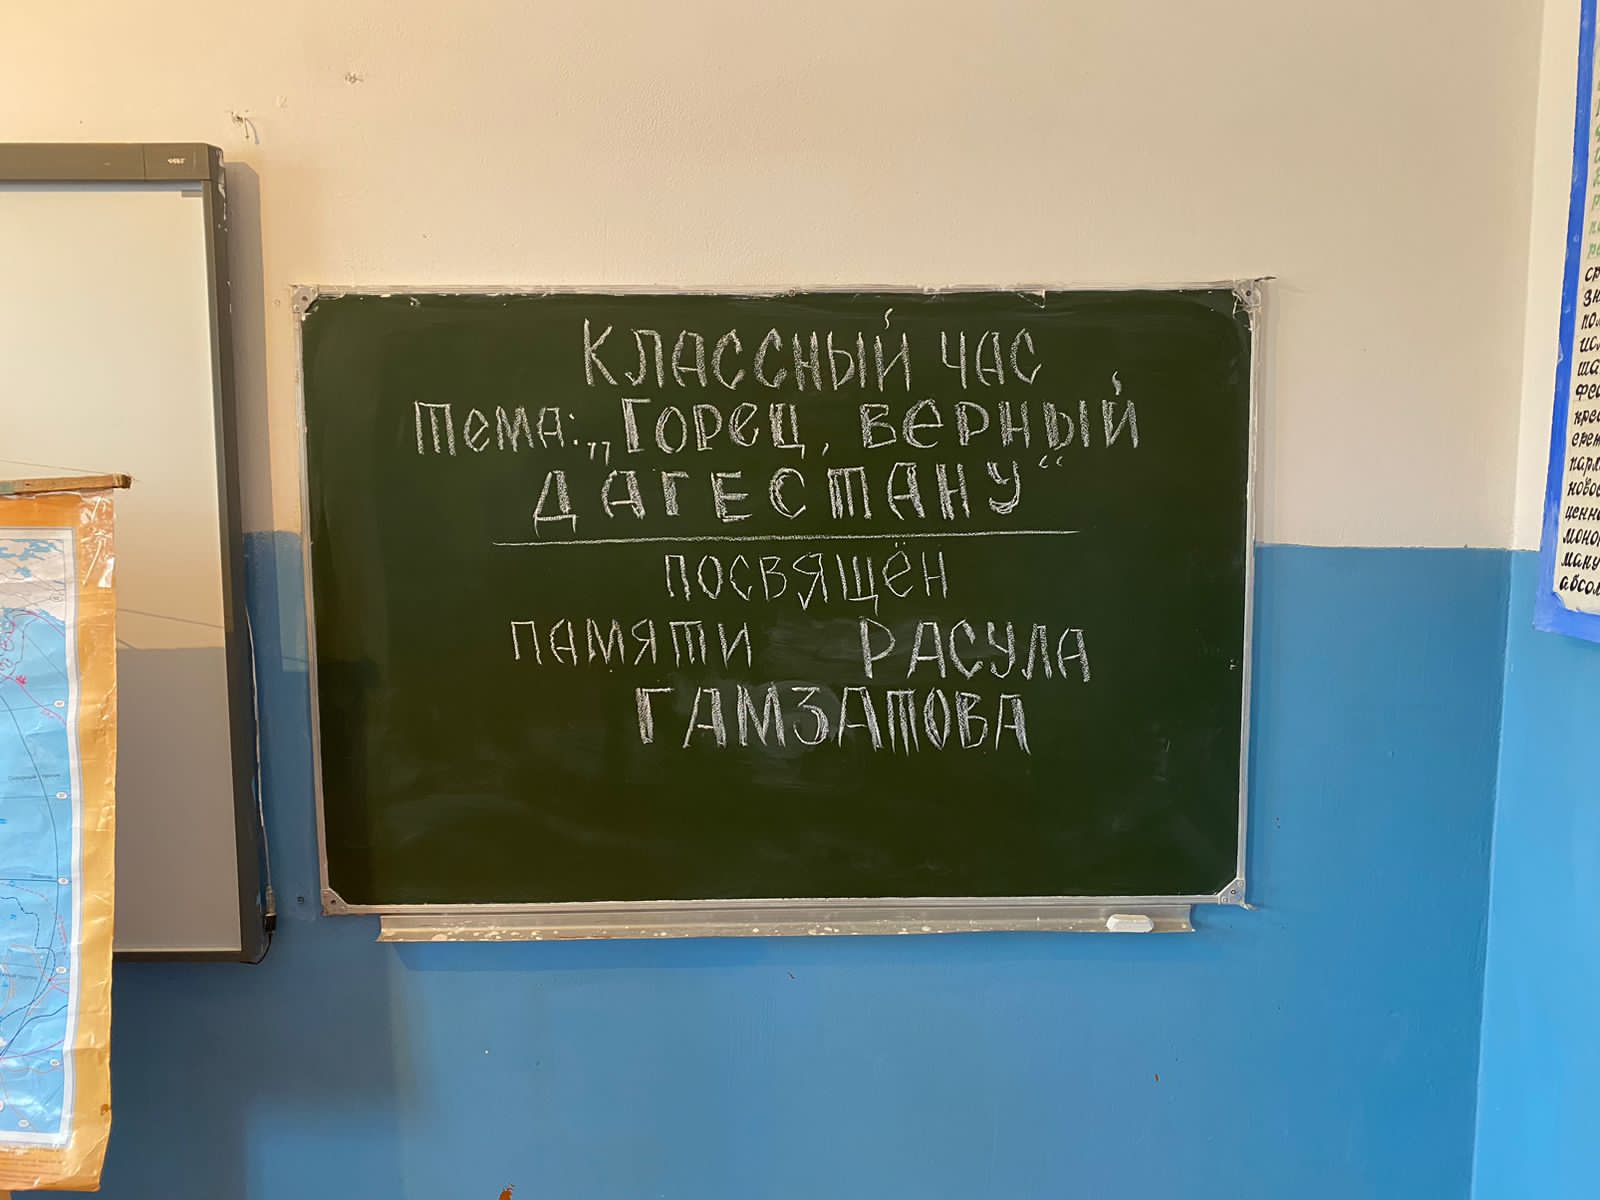 КЛАССНЫЙ ЧАС
Тема: „ГОРЕЦ, ВЕРНЫЙ
ДАГЕСТАНУ“
ПОСВЯЩЁН
ПАМЯТИ РАСУЛА
ГАМЗАТОВА